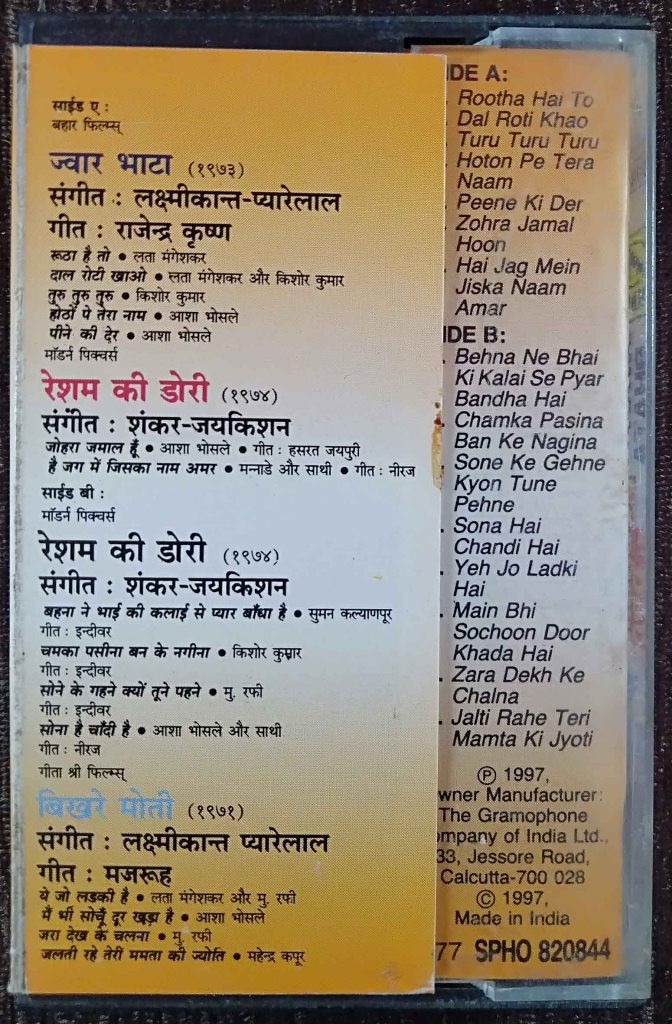 साईड ए :
बहार फिल्म्स्
ज्वार भाटा (१९७३)
संगीत : लक्ष्मीकान्त-प्यारेलाल
गीत : राजेन्द्र कृष्ण
रूठा है तो ● लता मंगेशकर
दाल रोटी खाओ ● लता मंगेशकर और किशोर कुमार
तुरु तुरु तुरु ● किशोर कुमार
होठों पे तेरा नाम ● आशा भोसले
पीने की देर ● आशा भोसले
मॉडर्न पिक्चर्स
रेशम की डोरी (१९७४)
संगीत : शंकर-जयकिशन
जोहरा जमाल हूँ ● आशा भोसले ● गीत : हसरत जयपुरी
है जग में जिसका नाम अमर ● मन्नाडे और साथी ● गीत : नीरज
साईड बी :
मॉडर्न पिक्चर्स
रेशम की डोरी (१९७४)
संगीत : शंकर-जयकिशन
बहना ने भाई की कलाई से प्यार बाँधा है ● सुमन कल्याणपूर
गीत : इन्दीवर
चमका पसीना बन के नगीना ● किशोर कुमार
गीत : इन्दीवर
सोने के गहने क्यों तूने पहने ● मु. रफी
गीत : इन्दीवर
सोना है चाँदी है ● आशा भोसले और साथी
गीत : नीरज
गीता श्री फिल्म्स्
बिखरे मोती (१९७१)
संगीत : लक्ष्मीकान्त प्यारेलाल
गीत : मजरूह
ये जो लडकी है ● लता मंगेशकर और मु. रफी
मैं भी सोचूँ दूर खड़ा है ● आशा भोसले
जरा देख के चलना ● मु. रफी
जलती रहे तेरी ममता की ज्योति ● महेन्द्र कपूर
IDE A:
Rootha Hai To
Dal Roti Khao
Turu Turu Turu
Hoton Pe Tera
Naam
Peene Ki Der
Zohra Jamal
Hoon
Hai Jag Mein
Jiska Naam
Amar
IDE B:
Behna Ne Bhai
Ki Kalai Se Pyar
Bandha Hai
Chamka Pasina
Ban Ke Nagina
Sone Ke Gehne
Kyon Tune
Pehne
Sona Hai
Chandi Hai
Yeh Jo Ladki
Hai
Main Bhi
Sochoon Door
Khada Hai
Zara Dekh Ke
Chalna
Jalti Rahe Teri
Mamta Ki Jyoti
℗ 1997,
wner Manufacturer:
The Gramophone
mpany of India Ltd.,
33, Jessore Road,
Calcutta-700 028
© 1997,
Made in India
77 SPHO 820844